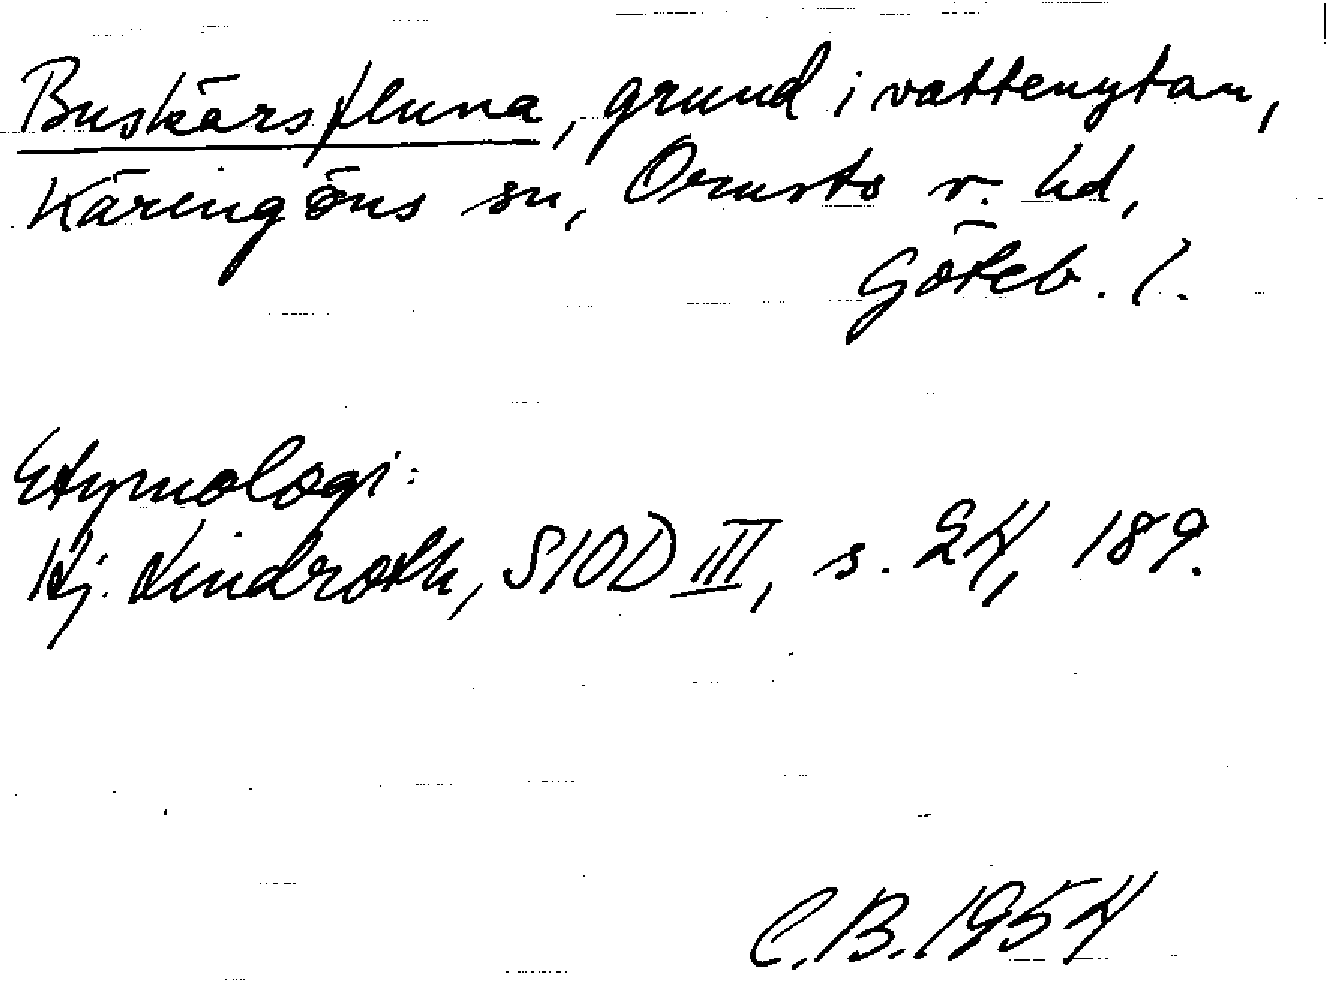 Buskärsfluna, grund i vattenytan,
Käringöns sn, Orusts v. hd,
Göteb. l.
Etymologi:
Hj. Lindroth, SIOD III, s. 24, 189.
C.B. 1954